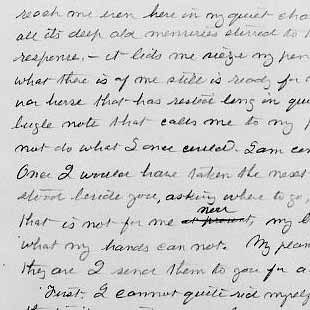 reach me even here in my quiet cha
all its deep old memories stirred to
response, - it bids me seize my pen
what there is of me still is ready for
war horse that has rested long in qui
bugle note that calls me to my
not do what I once could. I am
Once I would have taken the next
stood beside you, asking where to go,
that is not for me at present, now my
what my hands can not. My plan
they are I send them to you for a
First. I cannot quite rid myself